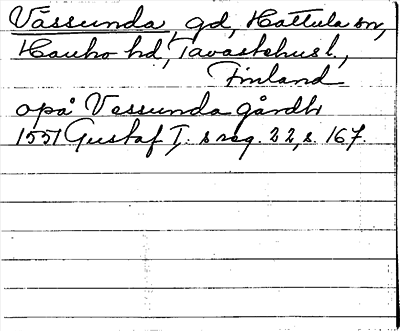 Vässunda, gd, Hattula sn,
Hauho hd, Tavastehus l.,
Finland
opå Vessunda gårdh
1551 Gustaf I:s reg. 22, s. 167.